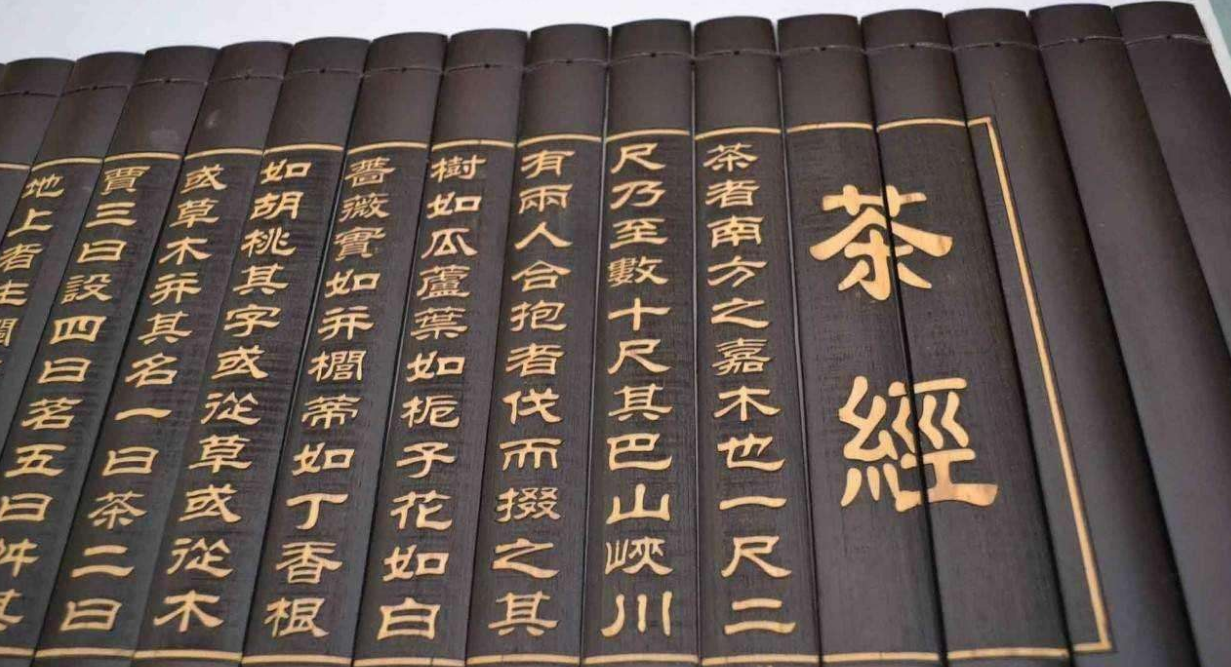 茶經
茶者南方之嘉木也一尺二
尺乃至數十尺其巴山峽川
有兩人合抱者伐而掇之其
樹如瓜蘆葉如梔子花如白
薔薇實如栟櫚蒂如丁香根
如胡桃其字或從草或從木
或草木并其名一曰茶二曰
賈三曰設四曰茗五曰荈其
地上者生